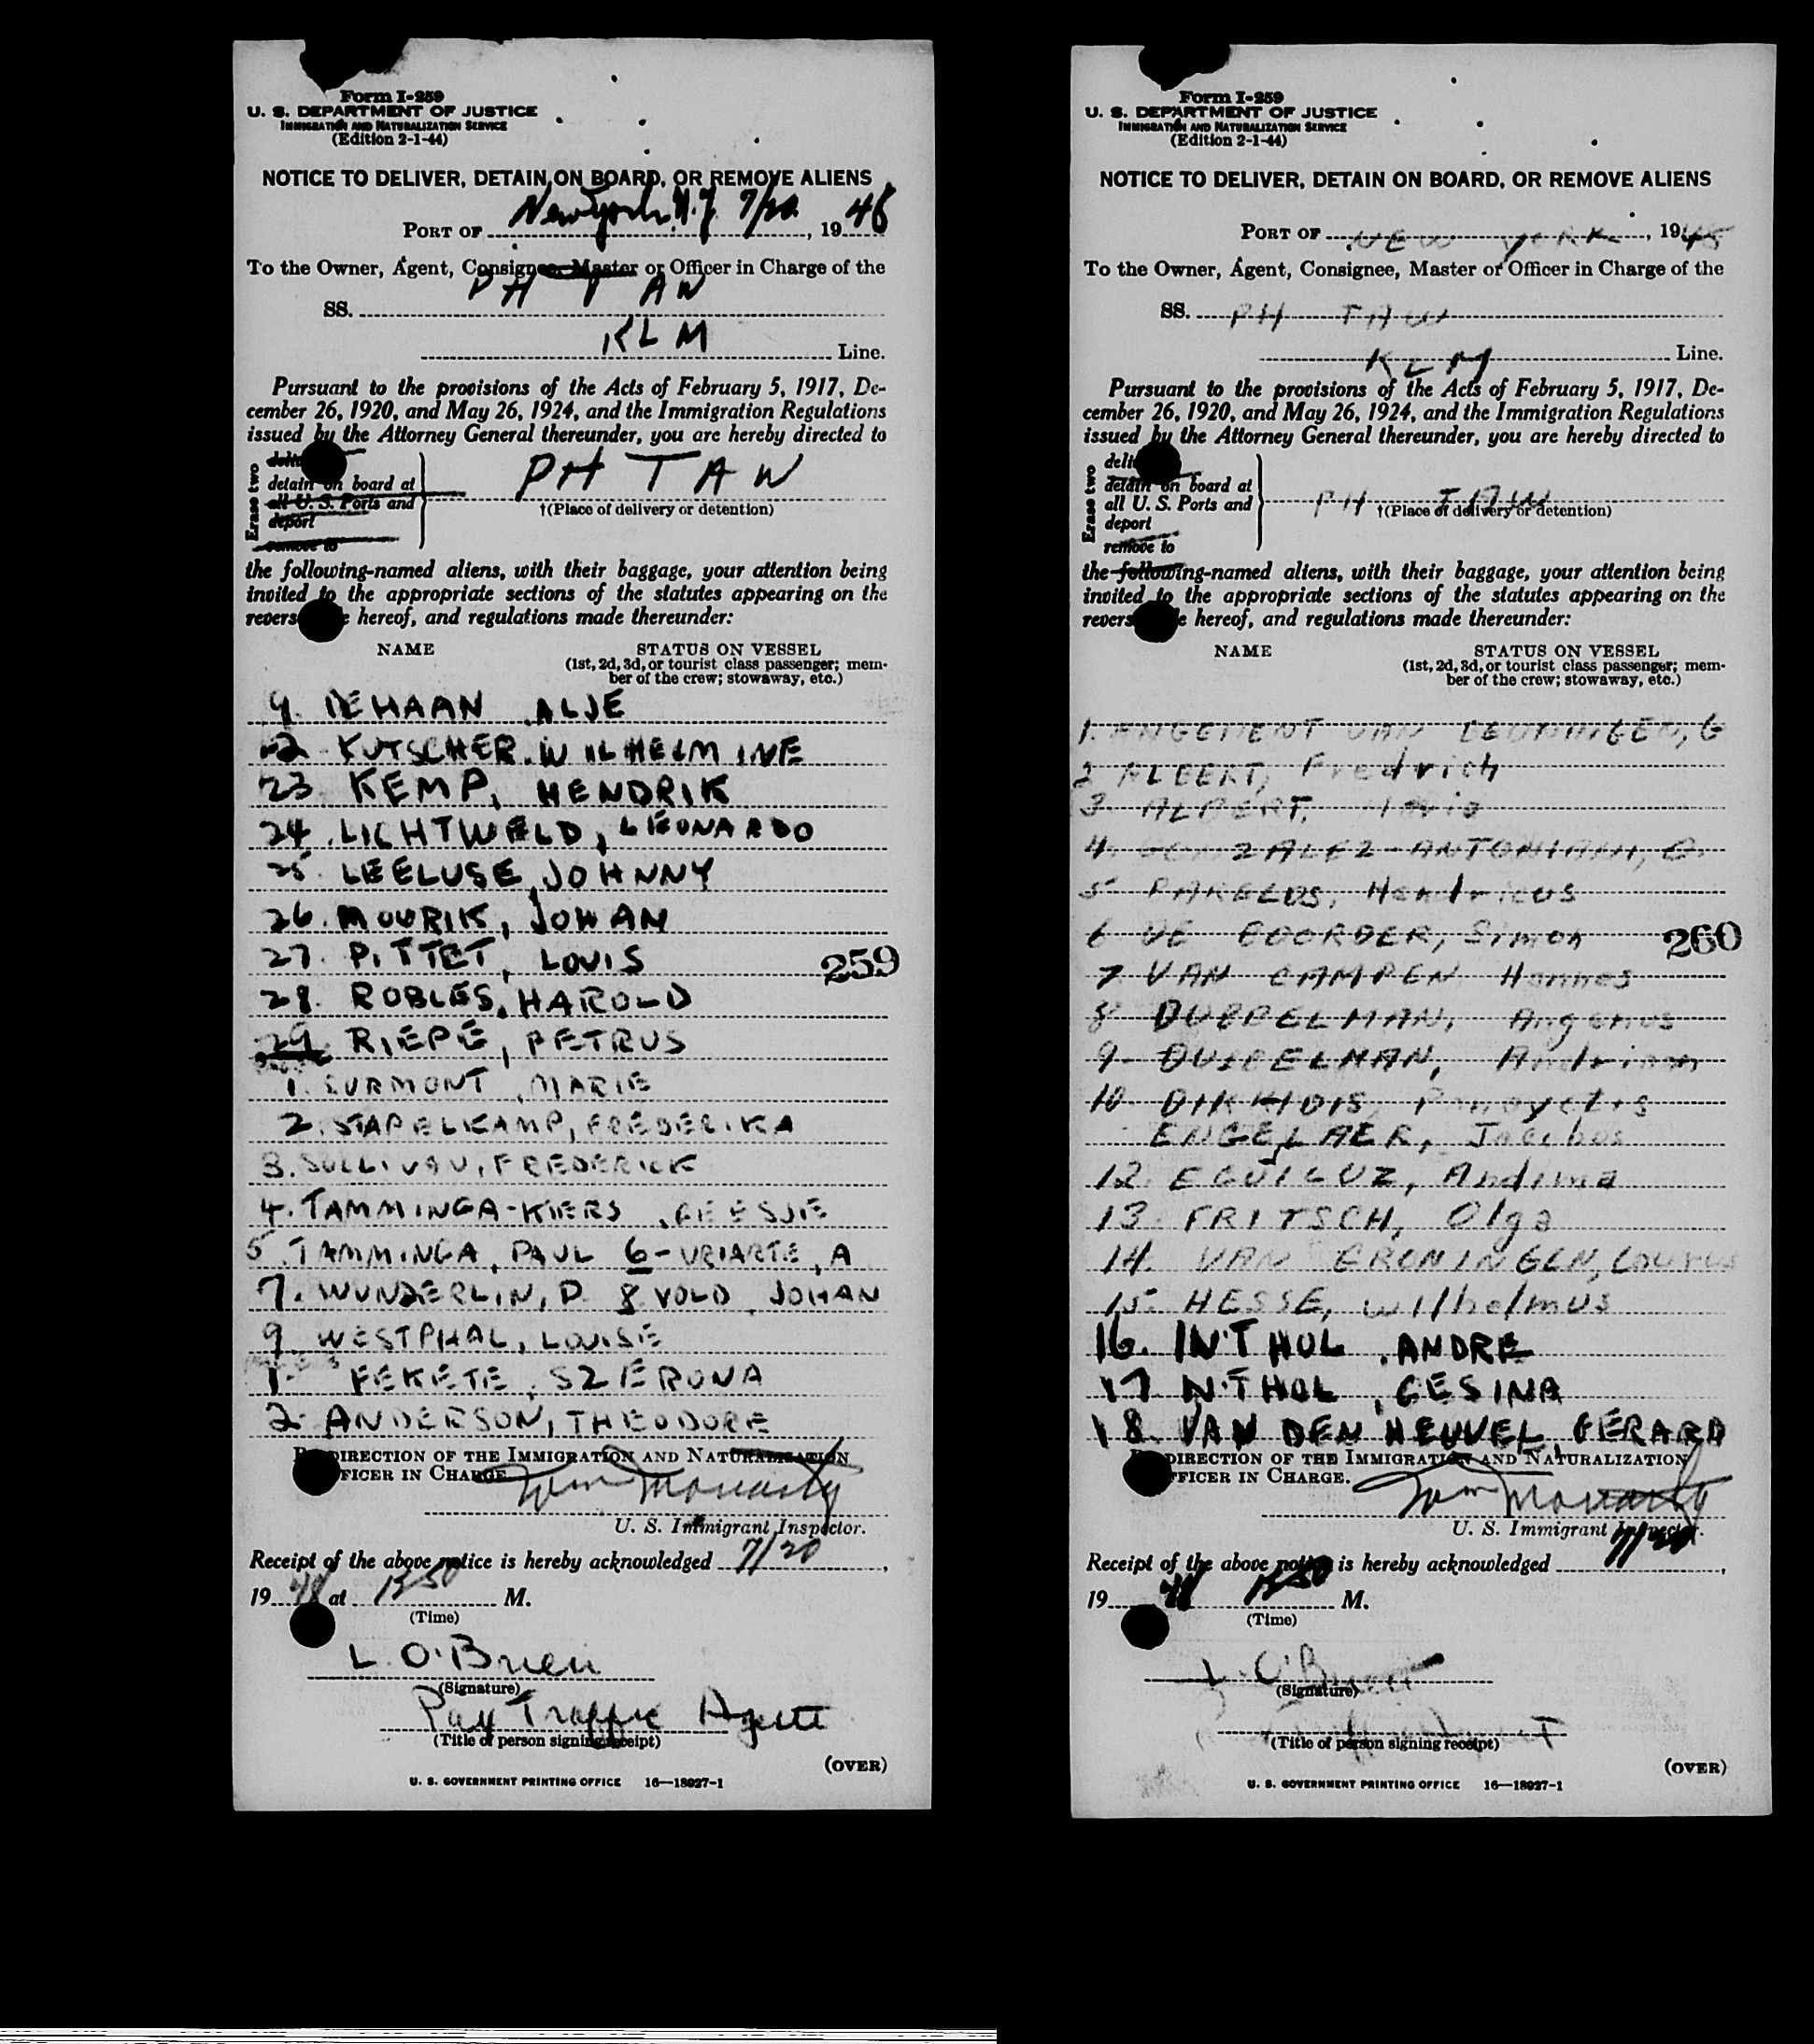 Form I-259
U. S. DEPARTMENT OF JUSTICE
IMMIGRATION AND NATURALIZATION SERVICE
(Edition 2-1-44)
NOTICE TO DELIVER, DETAIN ON BOARD, OR REMOVE ALIENS
PORT OF New York, N.Y. 7/20, 1948
To the Owner, Agent, Consignee, Master or Officer in Charge of the
SS. PH TAW
KLM Line.
Pursuant to the provisions of the Acts of February 5, 1917, De-
cember 26, 1920, and May 26, 1924, and the Immigration Regulations
issued by the Attorney General thereunder, you are hereby directed to
Erase two
detain on board at
all U. S. Ports and
deport
remove to
PH TAW
†(Place of delivery or detention)
the following-named aliens, with their baggage, your attention being
invited to the appropriate sections of the statutes appearing on the
hereof, and regulations made thereunder:
NAME STATUS ON VESSEL
(1st, 2d, 3d, or tourist class passenger; mem-
ber of the crew; stowaway, etc.)
DEHAAN ALJE
KUTSCHER, WILHELMINE
23 KEMP, HENDRIK
24. LICHTWELD, LEONARDO
25 LEELUSE, JOHNNY
26. MOURIK, JOHAN
27. PITTET, LOUIS
259
28. ROBLES, HAROLD
29 RIEPE, PETRUS
1. SURMONT, MARIE
2. STAPELKAMP, FREDERIKA
3. SULLIVAN, FREDERICK
4. TAMMINGA-KIERS,
5. TAMMINGA, PAUL 6-URIARTE, A
7. WUNDERLIN, D. 8 VOLD, JOHAN
9 WESTPHAL, LOUISE
1. FEKETE, SZERONA
2. ANDERSON, THEODORE
DIRECTION OF THE IMMIGRATION AND NATURALIZATION
OFFICER IN CHARGE.
Tom Moriarty
U. S. Immigrant Inspector.
Receipt of the above notice is hereby acknowledged 7/20,
1948 at 1250 M.
(Time)
L. O'Brien
(Signature)
Traffic Agent
(Title of person signing receipt)
(OVER)
U. S. GOVERNMENT PRINTING OFFICE 16—18927-1
Form I-259
U. S. DEPARTMENT OF JUSTICE
IMMIGRATION AND NATURALIZATION SERVICE
(Edition 2-1-44)
NOTICE TO DELIVER, DETAIN ON BOARD, OR REMOVE ALIENS
PORT OF NEW YORK, 1948
To the Owner, Agent, Consignee, Master or Officer in Charge of the
SS. PH TAW
KLM Line.
Pursuant to the provisions of the Acts of February 5, 1917, De-
cember 26, 1920, and May 26, 1924, and the Immigration Regulations
issued by the Attorney General thereunder, you are hereby directed to
Erase two
detain on board at
all U. S. Ports and
deport
remove to
PH TAW
†(Place of delivery or detention)
the following-named aliens, with their baggage, your attention being
invited to the appropriate sections of the statutes appearing on the
hereof, and regulations made thereunder:
NAME STATUS ON VESSEL
(1st, 2d, 3d, or tourist class passenger; mem-
ber of the crew; stowaway, etc.)
1. VAN G
2 ALBERT, Fredrich
3. ALBERT,
4.
5 Hendricus
6 DE Simon
260
7 VAN CAMPEN Hannes
8 DUBBELMAN,
9 DUBBELMAN, Andriaan
10.
ENGELAER, Jacobus
12. EGUILUZ, Andima
13. FRITSCH, Olga
14. VAN
15. HESSE, Wilhelmus
16. IN'T HOL, ANDRE
17 N'T HOL, GESINA
18. VAN DEN HEUVEL, GERARD
DIRECTION OF THE IMMIGRATION AND NATURALIZATION
OFFICER IN CHARGE.
Tom Moriarty
U. S. Immigrant Inspector.
Receipt of the above notice is hereby acknowledged 7/20,
1948 1250 M.
(Time)
L. O'Brien
(Signature)
(Title of person signing receipt)
(OVER)
U. S. GOVERNMENT PRINTING OFFICE 16—18927-1